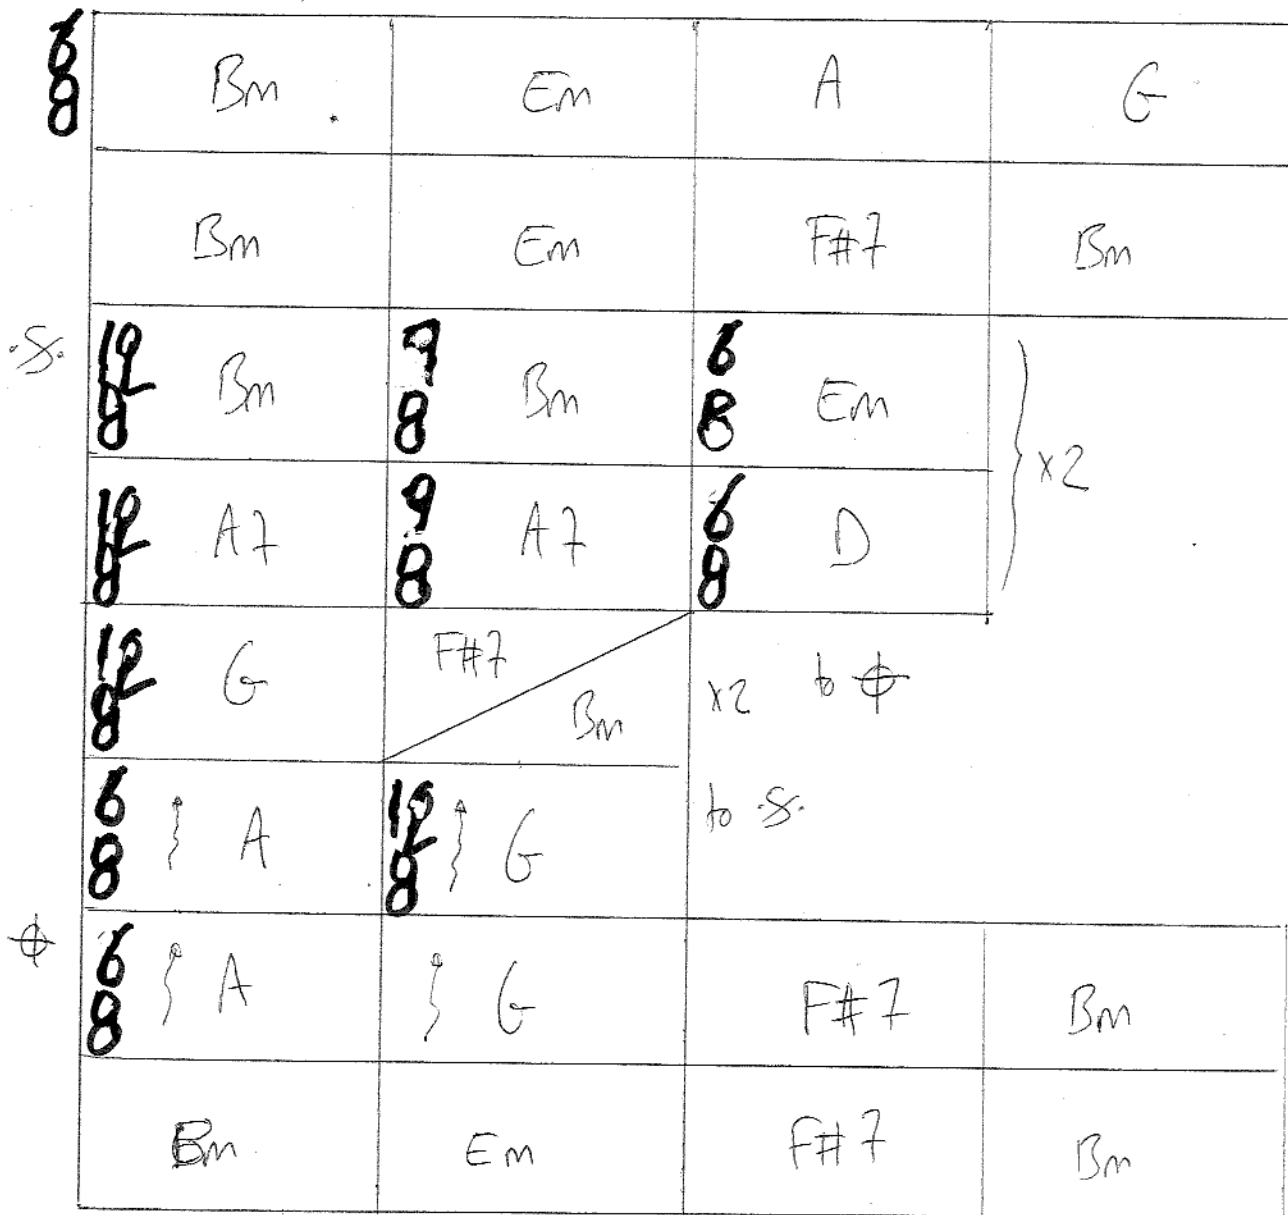 6/8 Bm Em A G
Bm Em F#7 Bm
𝄋 12/8 Bm 9/8 Bm 6/8 Em
x2
12/8 A7 9/8 A7 6/8 D
12/8 G F#7 Bm x2 to 𝄌
6/8 A 12/8 G to 𝄋
𝄌 6/8 A G F#7 Bm
Bm Em F#7 Bm